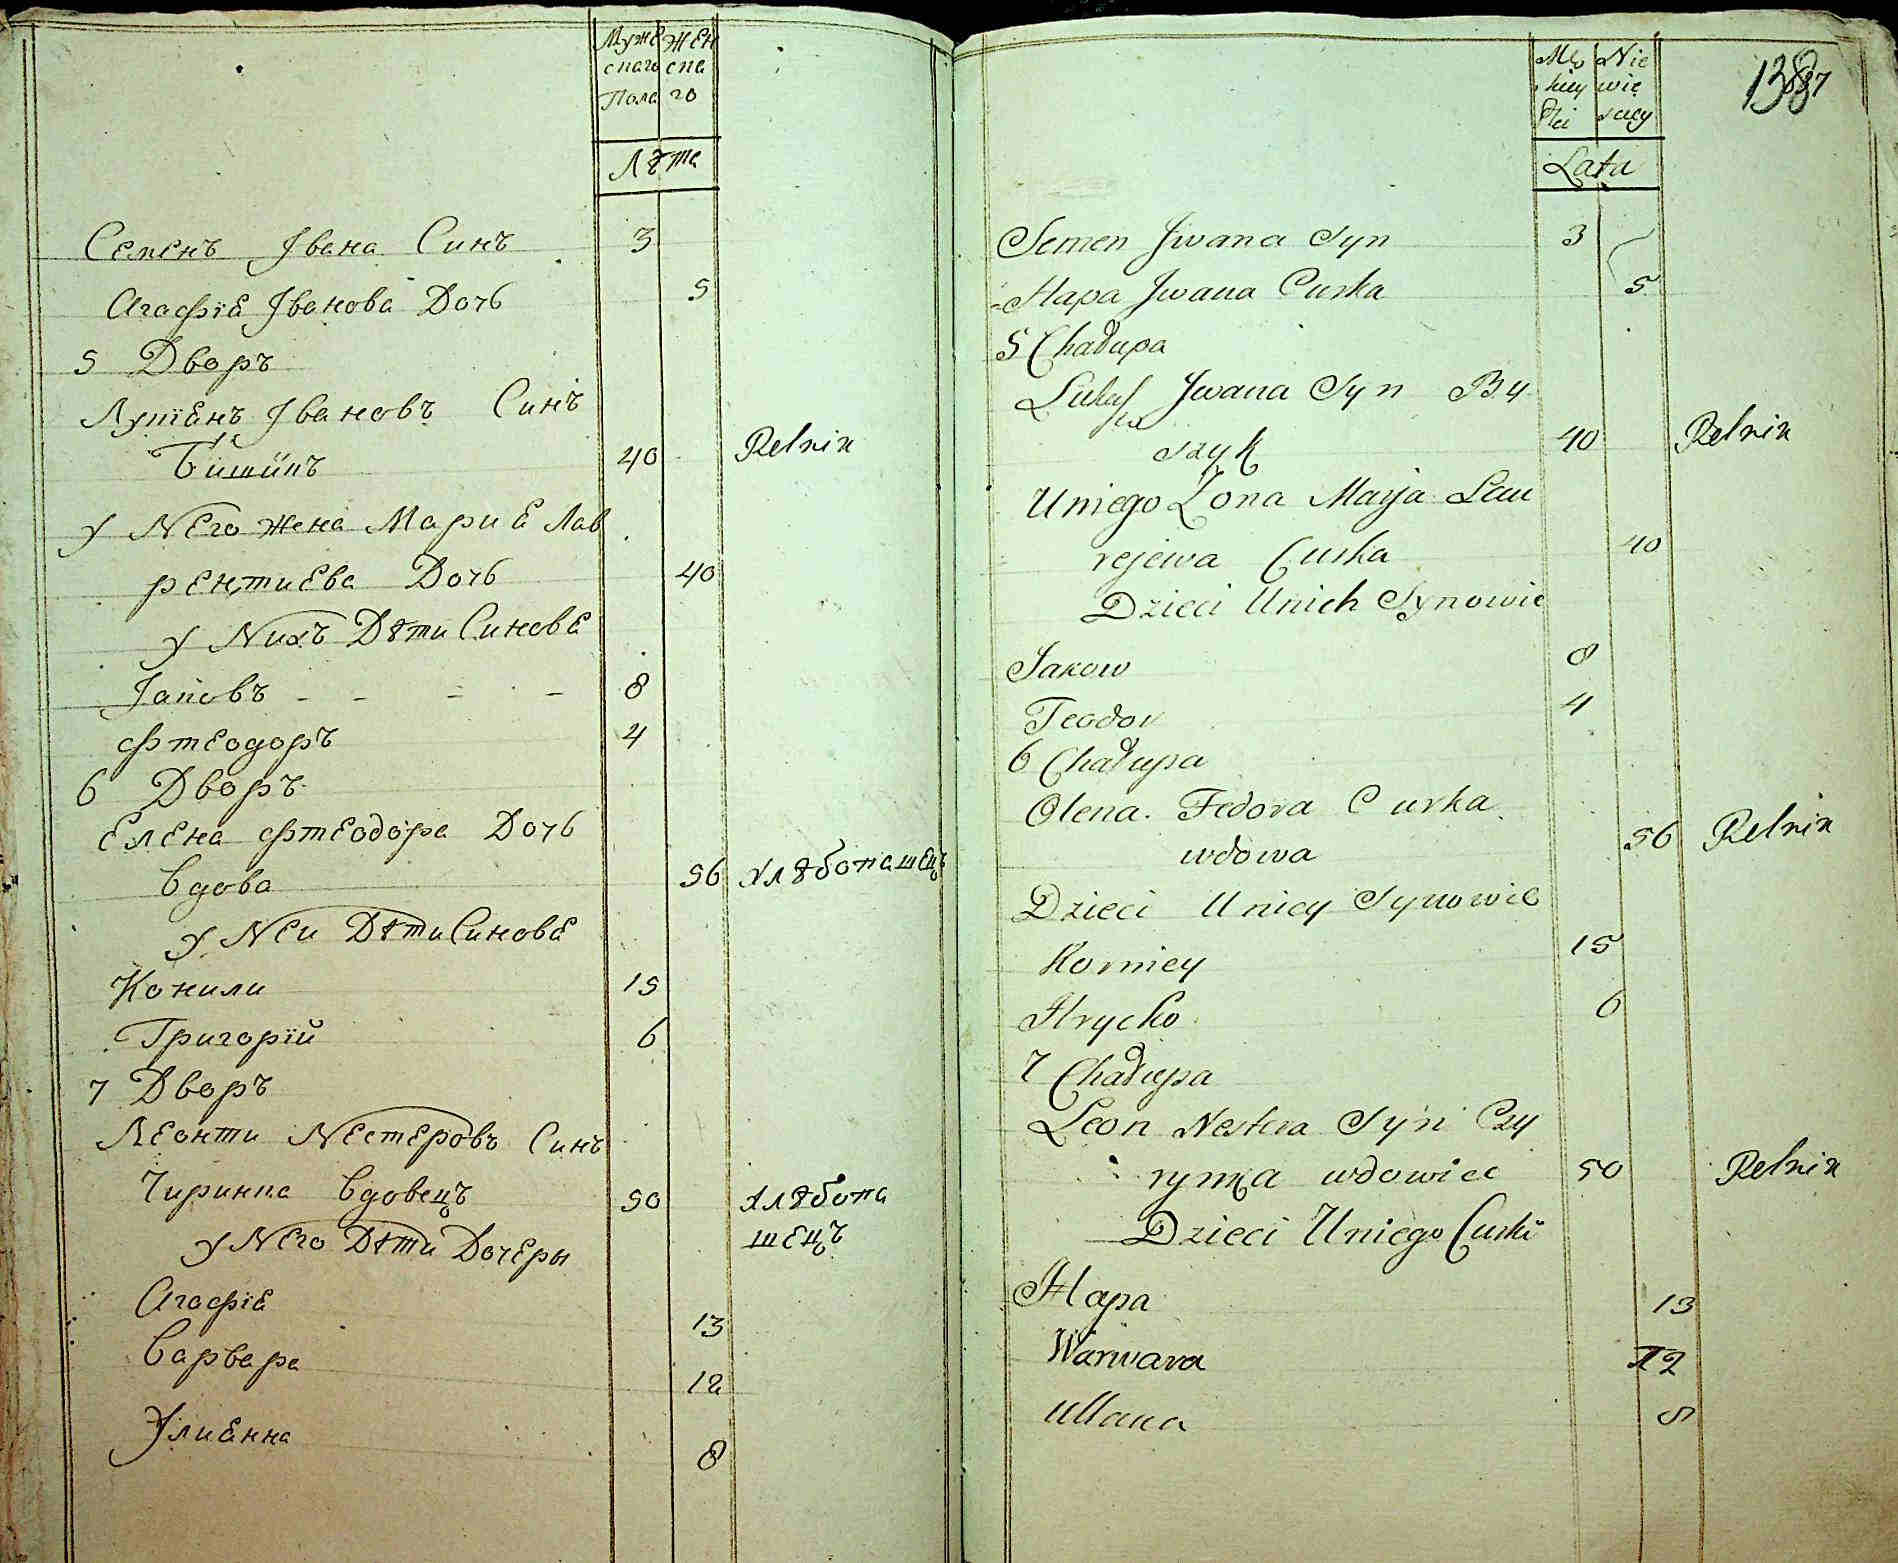 Муже Жен
скаго ска
Пола го
Лѣта
Семенъ Івана Синъ 3
Агафіа Іванова Дочь 5
5 Дворъ
Лукіанъ Івановъ Синъ
40 Rolnik
У Него Жена Мариа Лав
рентиева Дочь 40
У Нихъ Дѣти Синова
Іаковъ - - - - 8
Фтеодоръ 4
6 Дворъ
Елена Фтеодора Дочь
Вдова 56 Хлѣбопашецъ
У Неи Дѣти Синова
Конили 15
Григорій 6
7 Дворъ
Леонти Нестеровъ Синъ
Чиринка Вдовецъ 50 Хлѣбопа
шецъ
У Него Дѣти Дочеры
Агафіа 13
Варвара 12
Улианна 8
138
Nie
wie
Lata
Semen Jwana Syn 3
Hapa Jwana Curka 5
5 Chałupa
Jwana Syn By
szyk 40 Rolnik
Uniego Zona Marja Lau
rejewa Curka 40
Dzieci Unich Synowie
Jakow 8
Teodor 4
6 Chałupa
Olena Fedora Curka
wdowa 56 Rolnik
Dzieci Unicy Synowie
Korniey 15
Hrycko 6
7 Chałupa
Leon Nestera Syn Czy
rynka wdowiec 50 Rolnik
Dzieci Uniego Curki
Hapa 13
Warwara 12
Ullana 8